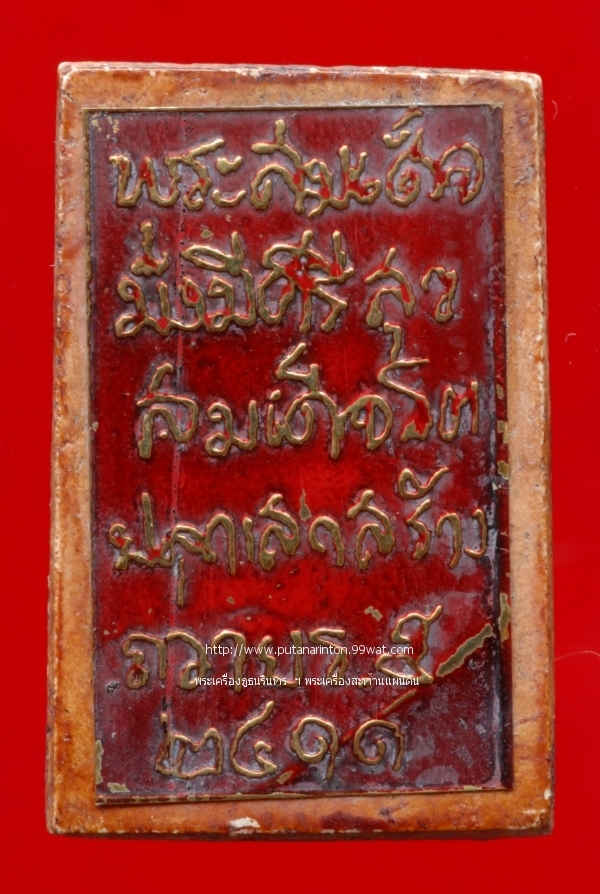 พระสมเด็จ
มิ่งมีศรีสว
สมเด็จโต
ปลุกเสกสร้าง
ถวายร.๕
http://www.putanarinton.99wat.com
พระเครื่องภูธนรินทร์ ฯ พระเครื่องสะท้านแผ่นดิน
๒๔๑๑